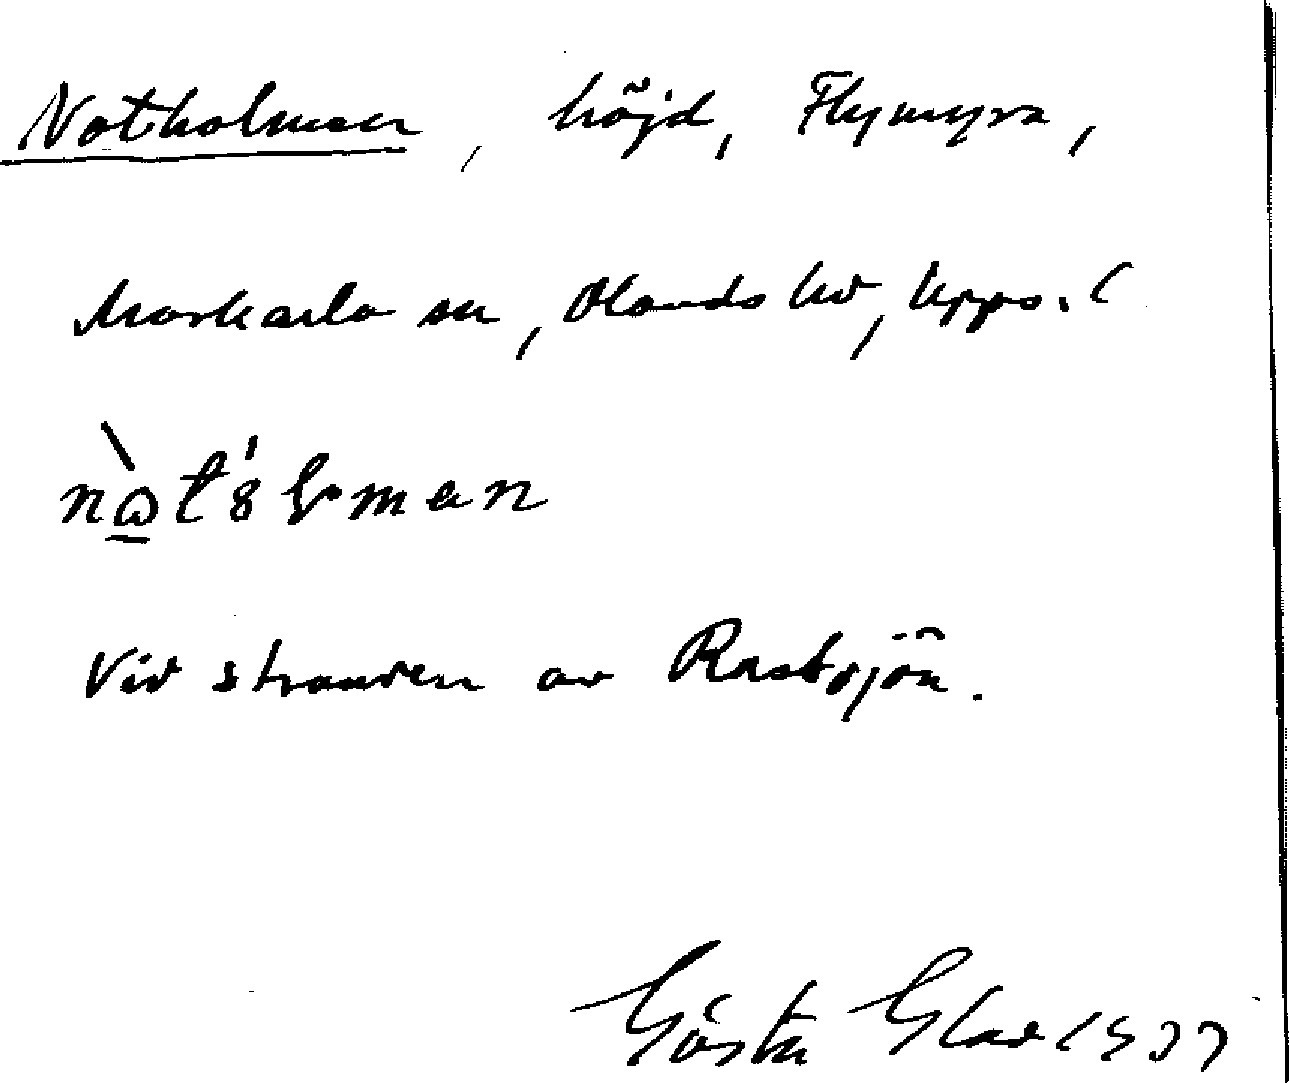 Notholmen, höjd, Flymyra,
Morkarla sn, Olands hd, Upps. l
Vid stranden av Rastsjön.
Gösta Glad 1977